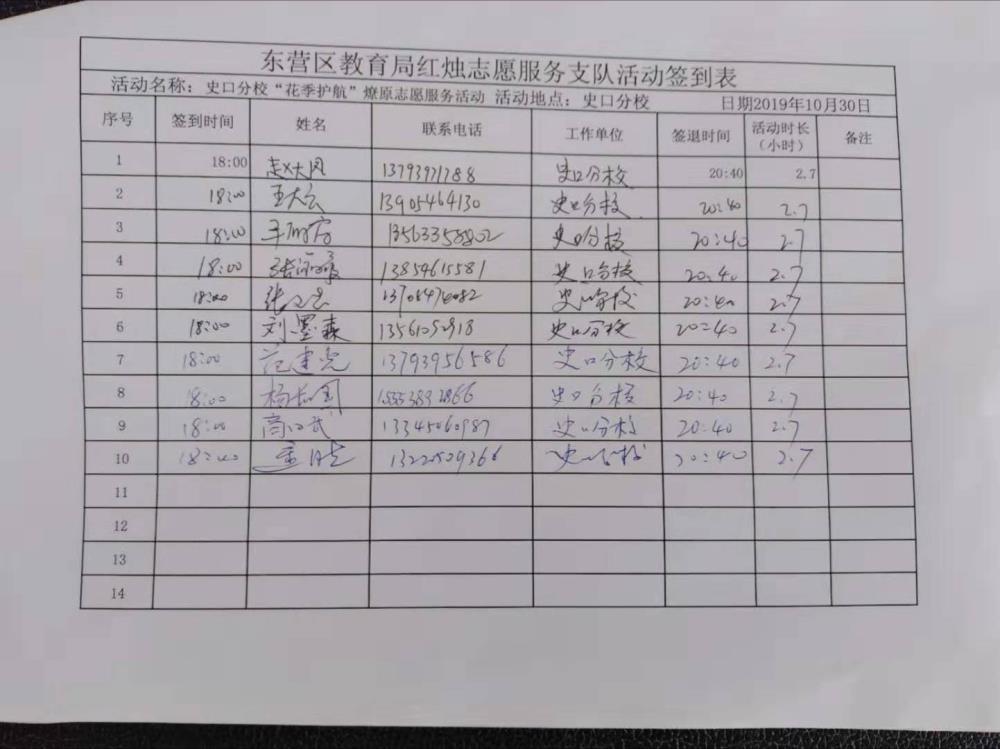 东营区教育局红烛志愿服务支队活动签到表
活动名称：史口分校“花季护航”燎原志愿服务活动 活动地点：史口分校 日期2019年10月30日
序号 签到时间 姓名 联系电话 工作单位 签退时间 活动时长（小时） 备注
1 18:00 赵大风 史口分校 20:40 2.7
2 18:00 13905464130 史口分校 20:40 2.7
3 18:00 13563358802 史口分校 20:40 2.7
4 18:00 13854615581 史口分校 20:40 2.7
5 18:00 史口分校 20:40 2.7
6 18:00 刘墨森 史口分校 20:40 2.7
7 18:00 范建亮 13793956586 史口分校 20:40 2.7
8 18:00 史口分校 20:40 2.7
9 18:00 13345060987 史口分校 20:40 2.7
10 18:00 史口分校 20:40 2.7
11
12
13
14